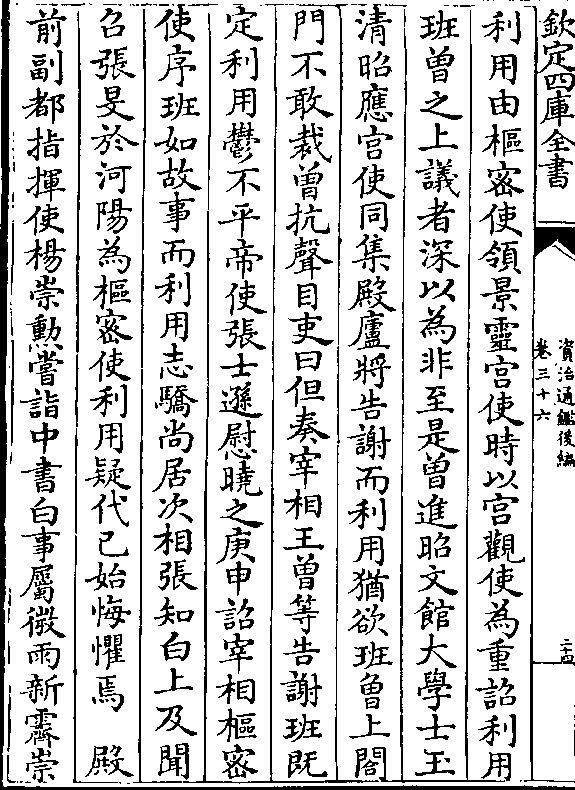 欽定四庫全書
資治通鑑後編
卷三十六
二十四
利用由樞密使領景靈宫使時以宫觀使為重詔利用
班曾之上議者深以為非至是曾進昭文館大學士玉
清昭應宫使同集殿廬將告謝而利用猶欲班曾上閤
門不敢裁曾抗聲目吏曰但奏宰相王曾等告謝班既
定利用鬱不平帝使張士遜慰曉之庚申詔宰相樞密
使序班如故事而利用志驕尚居次相張知白上及聞
召張旻於河陽為樞密使利用疑代已始悔懼焉　殿
前副都指揮使楊崇勲嘗詣中書白事屬微雨新霽崇